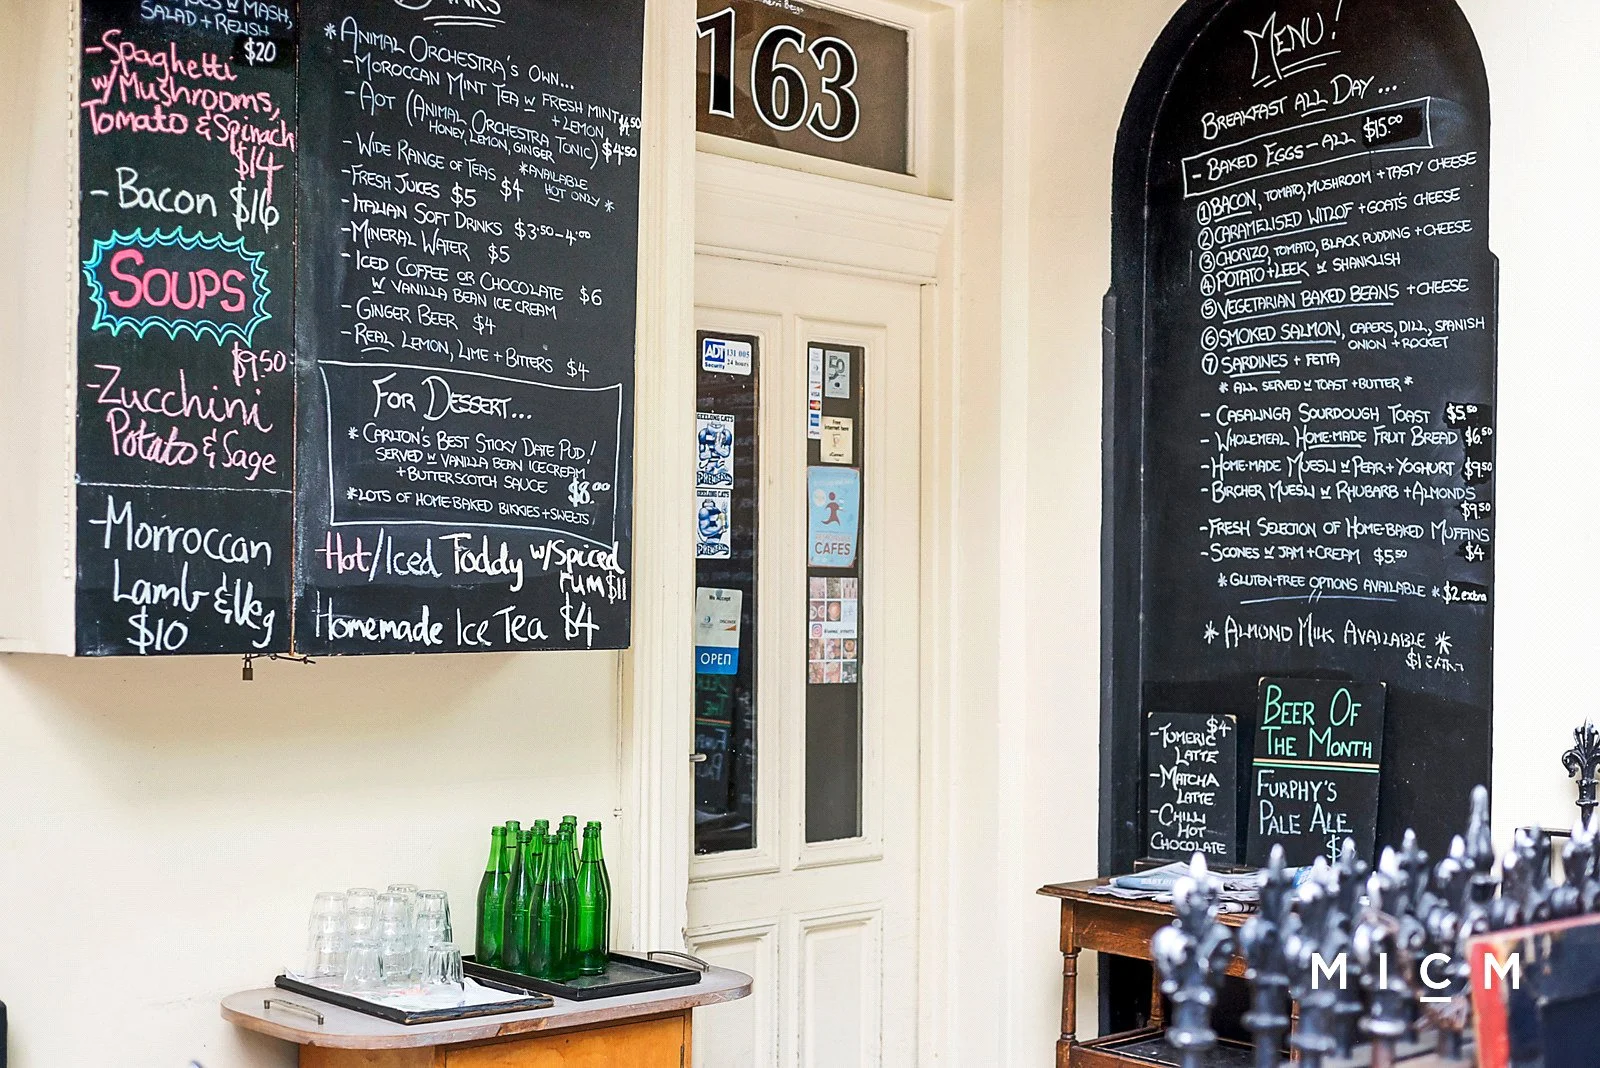 SALAD + RELISH
$20
-Spaghetti
w/Mushrooms,
Tomato & Spinach
$14
-Bacon $16
SOUPS
$9.50
-Zucchini
Potato & Sage
-Morroccan
Lamb & Veg
$10
* ANIMAL ORCHESTRA'S OWN...
-MOROCCAN MINT TEA W FRESH MINT
+ LEMON $4.50
-AOT (ANIMAL ORCHESTRA TONIC) $4.50
HONEY, LEMON, GINGER
-WIDE RANGE OF TEAS $4
*AVAILABLE
HOT ONLY *
-FRESH JUICES $5
-ITALIAN SOFT DRINKS $3.50-4.00
-MINERAL WATER $5
-ICED COFFEE OR CHOCOLATE $6
W VANILLA BEAN ICE CREAM
-GINGER BEER $4
-REAL LEMON, LIME + BITTERS $4
FOR DESSERT...
* CARLTON'S BEST STICKY DATE PUD!
SERVED W VANILLA BEAN ICECREAM
+ BUTTERSCOTCH SAUCE $8.00
*LOTS OF HOME BAKED BIKKIES + SWEETS
Hot/Iced Toddy w/Spiced
rum $11
Homemade Ice Tea $4
163
ADT 131 005
Security 24 hours
GEELONG CATS
PREMIERS
PREMIERS
We Accept
DISCOVER
OPEN
VISA
Free
internet here
CAFES
MENU!
BREAKFAST ALL DAY...
- BAKED EGGS - ALL $15.00
1 BACON, TOMATO, MUSHROOM + TASTY CHEESE
2 CARAMELISED WITLOF + GOAT'S CHEESE
3 CHORIZO, TOMATO, BLACK PUDDING + CHEESE
4 POTATO + LEEK W SHANKLISH
5 VEGETARIAN BAKED BEANS + CHEESE
6 SMOKED SALMON, CAPERS, DILL, SPANISH
ONION + ROCKET
7 SARDINES + FETTA
* ALL SERVED W TOAST + BUTTER *
- CASALINGA SOURDOUGH TOAST $5.50
- WHOLEMEAL HOME-MADE FRUIT BREAD $6.50
-HOME-MADE MUESLI W PEAR + YOGHURT $9.50
- BIRCHER MUESLI W RHUBARB + ALMONDS
$9.50
-FRESH SELECTION OF HOME-BAKED MUFFINS
$4
- SCONES W JAM + CREAM $5.50
* GLUTEN-FREE OPTIONS AVAILABLE * $2 extra
* ALMOND MILK AVAILABLE *
$1 EXTRA
$4
-TUMERIC
LATTE
-MATCHA
LATTE
-CHILLI
HOT
CHOCOLATE
BEER OF
THE MONTH
FURPHY'S
PALE ALE
MICM